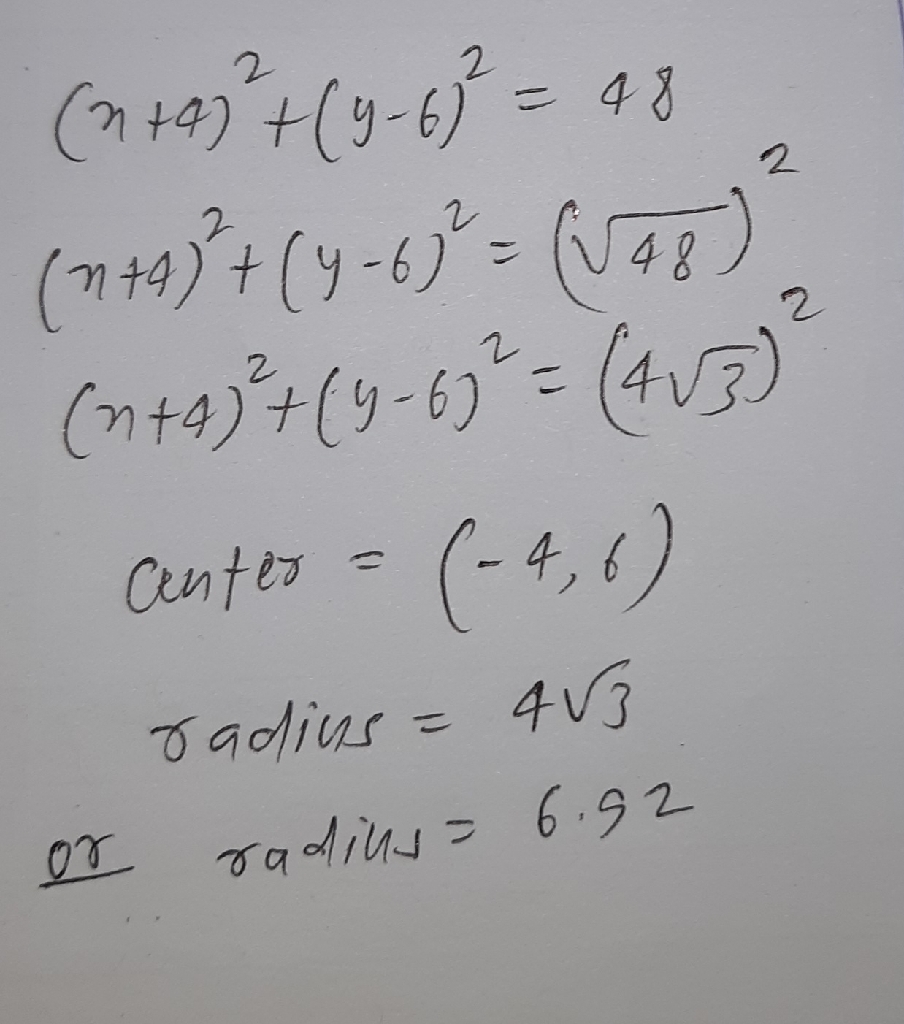 (x+4)² + (y-6)² = 48
(x+4)² + (y-6)² = (√48)²
(x+4)² + (y-6)² = (4√3)²
center = (-4, 6)
radius = 4√3
or radius = 6.92